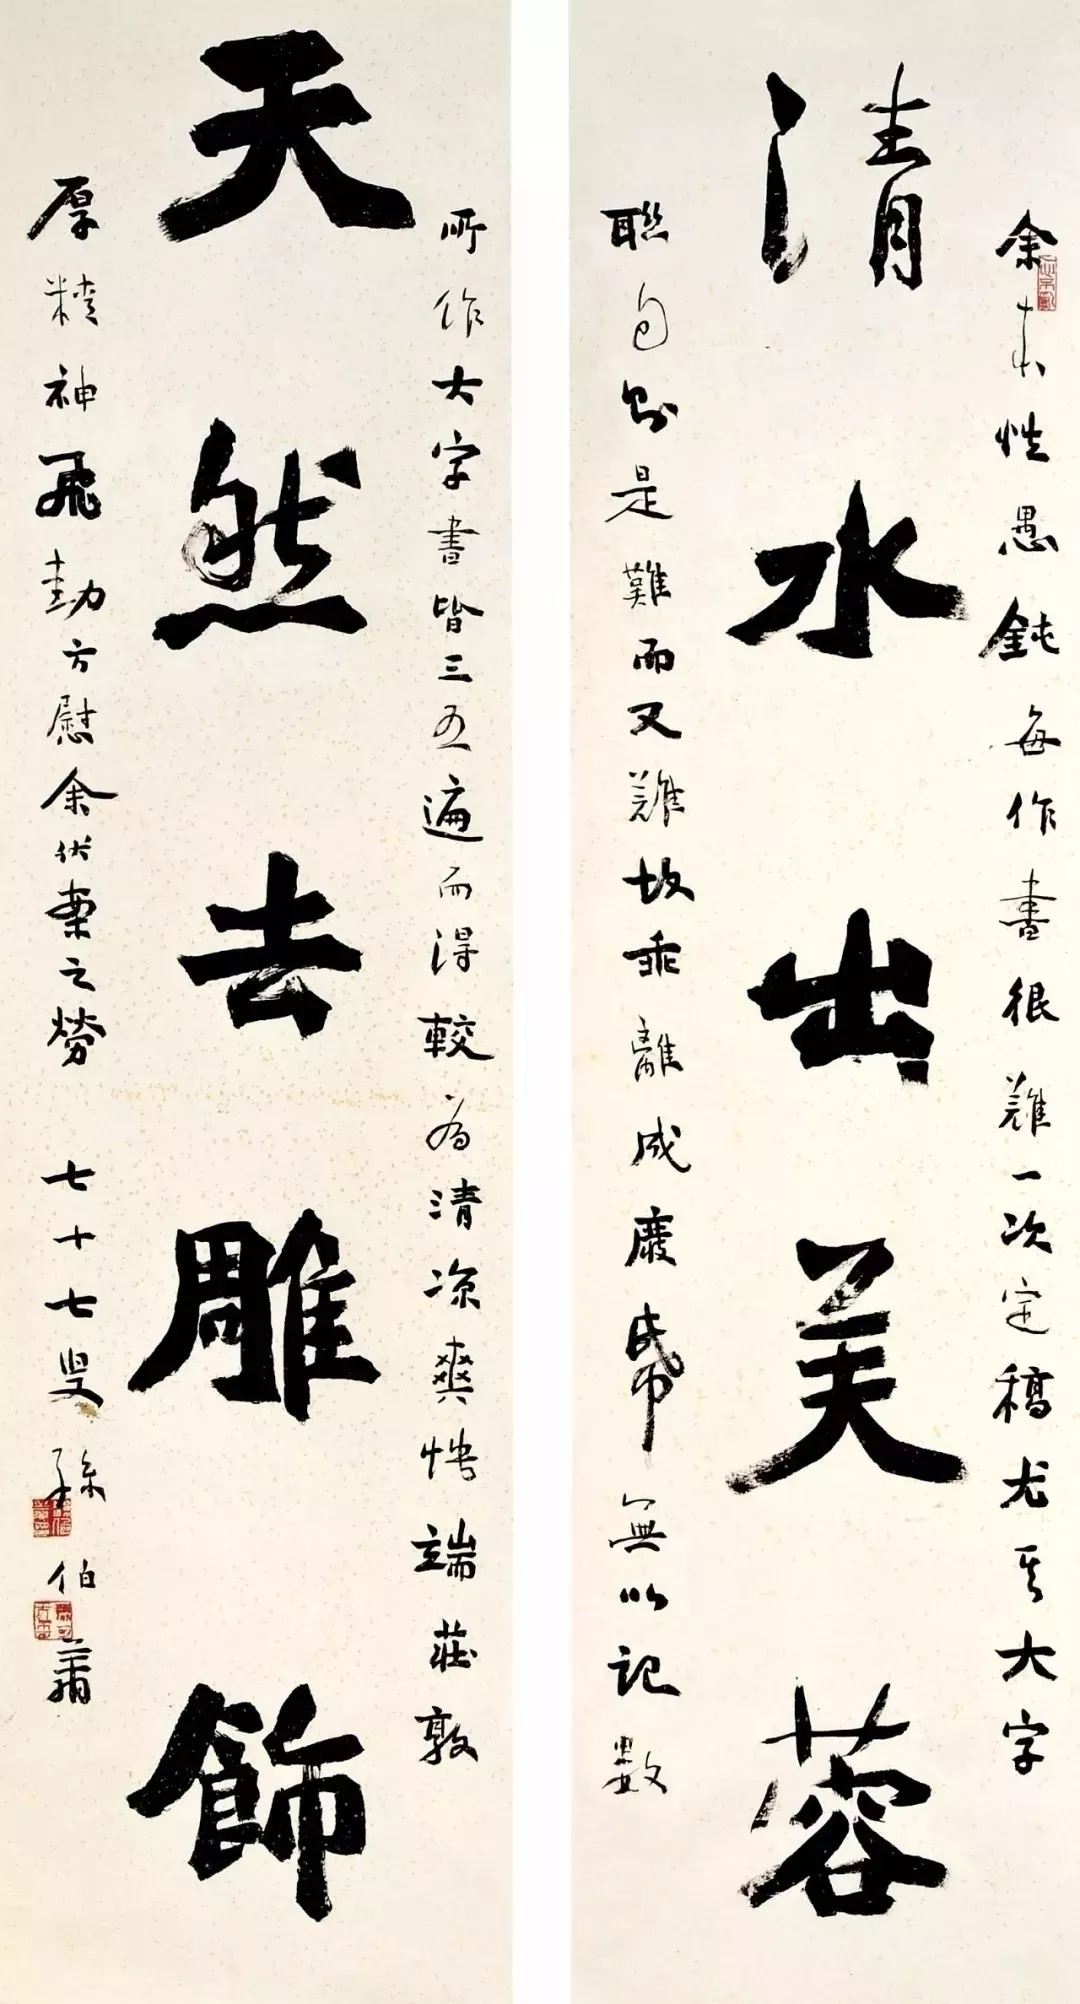 清水出芙蓉
余本性愚鈍每作書很難一次定稿尤其大字
聯句則是難而又難故乖離成廢幣無以記數
天然去雕飾
所作大字書皆三五遍而得較為清涼爽快端莊敦
厚精神飛動方慰余伏案之勞 七十七叟孫伯翔